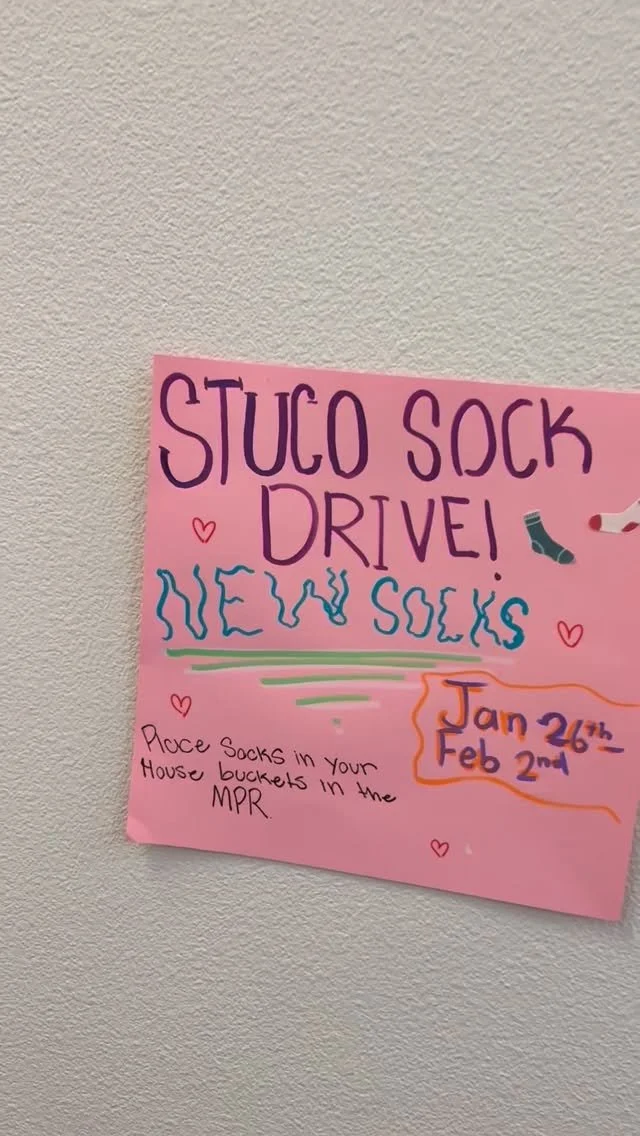 STUCO SOCK
DRIVE!
NEW SOCKS
Jan 26th-
Feb 2nd
Place Socks in your
House buckets in the
MPR.